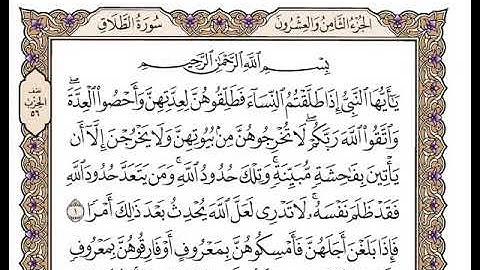 الجزء الثامن والعشرون
سورة الطلاق
نصف
الحزب
٥٦
بِسْمِ اللَّهِ الرَّحْمَٰنِ الرَّحِيمِ
يَٰٓأَيُّهَا ٱلنَّبِيُّ إِذَا طَلَّقْتُمُ ٱلنِّسَآءَ فَطَلِّقُوهُنَّ لِعِدَّتِهِنَّ وَأَحْصُوا۟ ٱلْعِدَّةَ ۖ
وَٱتَّقُوا۟ ٱللَّهَ رَبَّكُمْ ۖ لَا تُخْرِجُوهُنَّ مِنۢ بُيُوتِهِنَّ وَلَا يَخْرُجْنَ إِلَّآ أَن
يَأْتِينَ بِفَٰحِشَةٍ مُّبَيِّنَةٍ ۚ وَتِلْكَ حُدُودُ ٱللَّهِ ۚ وَمَن يَتَعَدَّ حُدُودَ ٱللَّهِ
فَقَدْ ظَلَمَ نَفْسَهُۥ ۚ لَا تَدْرِى لَعَلَّ ٱللَّهَ يُحْدِثُ بَعْدَ ذَٰلِكَ أَمْرًا ١
فَإِذَا بَلَغْنَ أَجَلَهُنَّ فَأَمْسِكُوهُنَّ بِمَعْرُوفٍ أَوْ فَارِقُوهُنَّ بِمَعْرُوفٍ